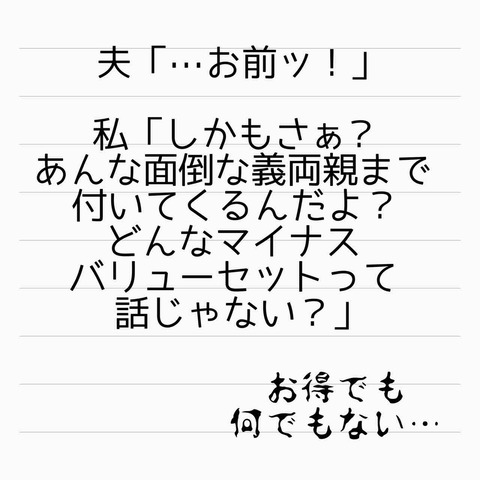 夫「…お前ッ！」
私「しかもさぁ？
あんな面倒な義両親まで
付いてくるんだよ？
どんなマイナス
バリューセットって
話じゃない？」
お得でも
何でもない…